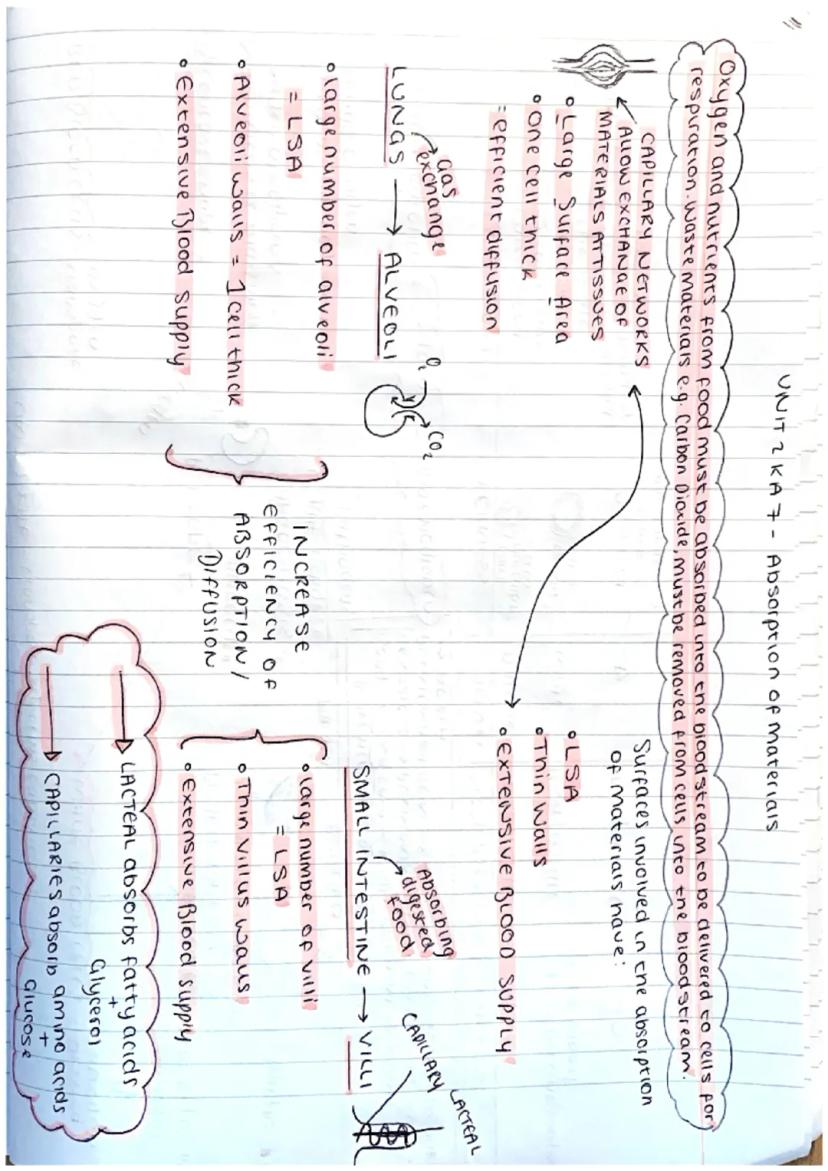 UNIT 2 KA 7 - Absorption of Materials
Oxygen and nutrients from food must be absorbed into the bloodstream to be delivered to cells for
respiration. Waste materials e.g. Carbon Dioxide, must be removed from cells into the bloodstream.
CAPILLARY NETWORKS
ALLOW EXCHANGE OF
MATERIALS AT TISSUES
• Large Surface Area
• One cell thick
= efficient diffusion
Surfaces involved in the absorption
of materials have:
• LSA
• Thin walls
• EXTENSIVE BLOOD SUPPLY
Gas
exchange
LUNGS → ALVEOLI
O₂
CO₂
• Large number of alveoli
= LSA
• Alveoli walls = 1 cell thick
• Extensive Blood Supply
INCREASE
EFFICIENCY OF
ABSORPTION/
DIFFUSION
Absorbing
digested
food
SMALL INTESTINE → VILLI
CAPILLARY
LACTEAL
• Large number of villi
= LSA
• Thin villus walls
• Extensive Blood Supply
→ LACTEAL absorbs fatty acids
+
Glycerol
→ CAPILLARIES absorb amino acids
+
Glucose